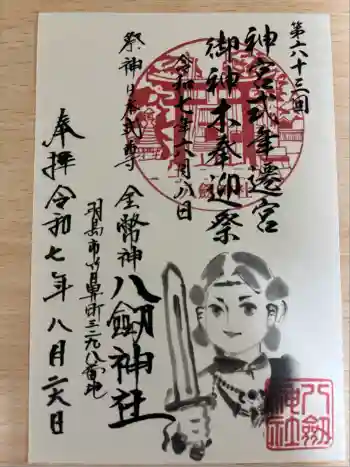 第六十三回
神宮式年遷宮
御神木奉迎祭
令和七年六月八日
祭神 日本武尊
金幣神 八劔神社
羽島市竹鼻町三二九八番地
奉拝 令和七年八月二六日
八劔神社